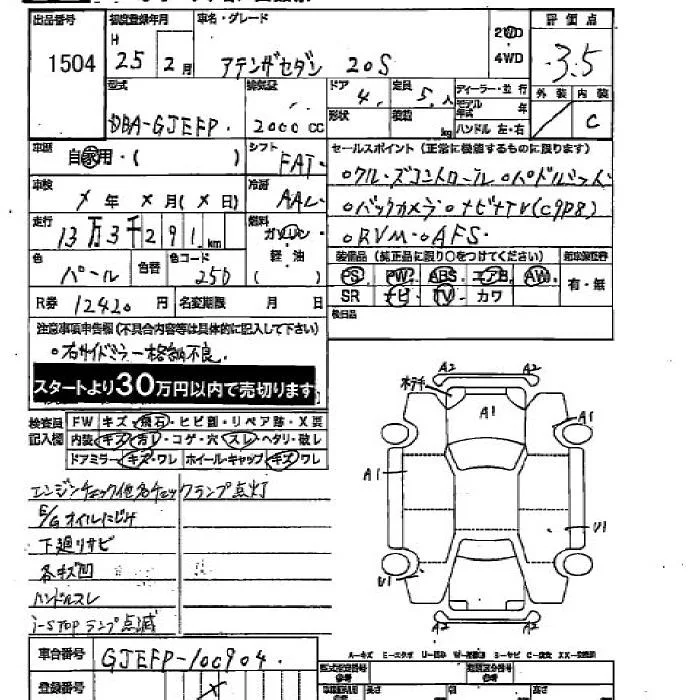 出品番号
1504
初度登録年月
H 25 2月
車名・グレード
アテンザセダン 20S
2WD
4WD
評価点
3.5
外装 内装
C
型式
DBA-GJEFP
排気量
2000 CC
ドア 4
定員 5人
形状
積載 kg
ディーラー・並行
モデル年式 年
ハンドル 左・右
車歴
自家用・( )
シフト
FAT
車検
× 年 × 月 (× 日)
冷房
AAC
走行
13万3千291 km
燃料
ガソリン
軽油
色
パール
色替
色コード
25D
R券 12420 円
名変期限 月 日
セールスポイント (正常に機能するものに限ります)
○クルーズコントロール ○パドルシフト
○バックカメラ ○ナビTV(C9P8)
○RVM ○AFS
装備品 (純正品に限り○をつけてください)
PS PW ABS エアB AW
SR ナビ TV カワ
有・無
後日品
注意事項申告欄(不具合内容等は具体的に記入して下さい)
○右サイドミラー格納不良
スタートより30万円以内で売切ります
検査員記入欄
FW キズ・飛石・ヒビ割・リペア跡・X要
内装・キズ・汚レ・コゲ・穴・スレ・ヘタリ・破レ
ドアミラー・キズ・ワレ ホイールキャップ・キズ・ワレ
エンジンチェック他各チェックランプ点灯
E/Gオイルにじみ
下廻リサビ
各キズ凹
ハンドルスレ
i-STOPランプ点滅
車台番号
GJEFP-100904
登録番号
×
A2 A2
ホテチ
A1
A1
A1
U1
U1
A2 A2